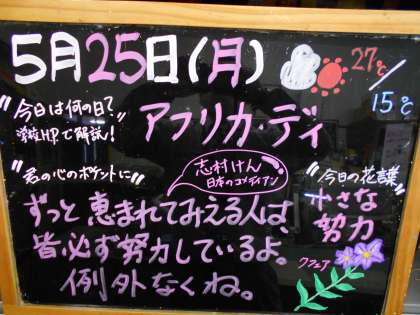 5月25日(月)
27℃/15℃
"今日は何の日?
学校HPで解説!"
アフリカ・デイ
"君の心のポケットに"
志村けん
日本のコメディアン
ずっと恵まれてみえる人は、
皆必ず努力しているよ。
例外なくね。
"今日の花言葉"
小さな
努力
クフェア